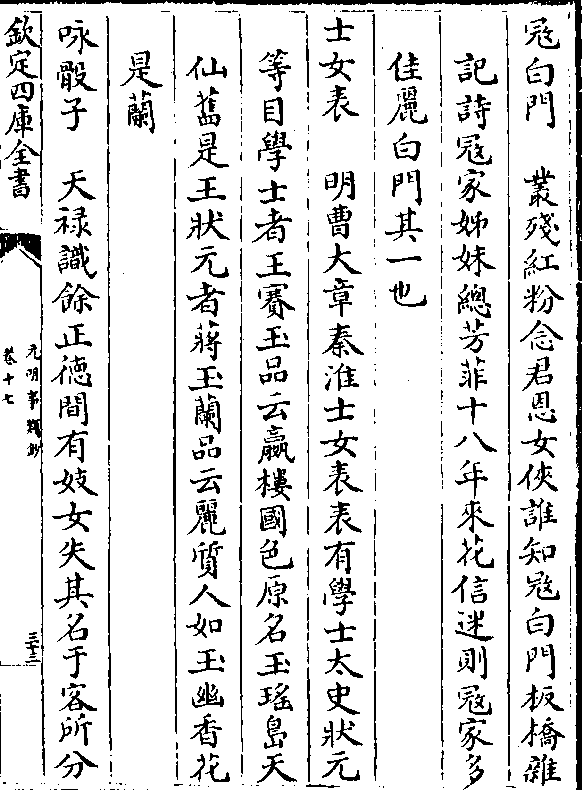 冦白門　叢殘紅粉念君恩女俠誰知冦白門板橋雜
記詩冦家姊妹總芳菲十八年來花信迷則冦家多
佳麗白門其一也
士女表　明曹大章秦淮士女表表有學士太史狀元
等目學士者王賽玉品云嬴樓國色原名玉瑤島天
仙舊是王狀元者蔣玉蘭品云麗質人如玉幽香花
是蘭
咏骰子　天禄識餘正徳間有妓女失其名于客所分
欽定四庫全書
元明事類鈔
卷十七
三十三